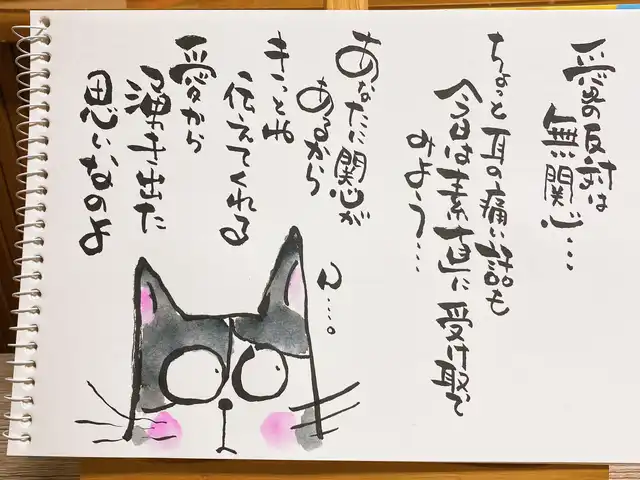 愛の反対は
無関心…
ちょっと耳の痛い話も
今日は素直に受け取って
みよう…
あなたに関心が
あるから
きっとね
伝えてくれる
愛から
湧き出た
思いなのよ
ん…。